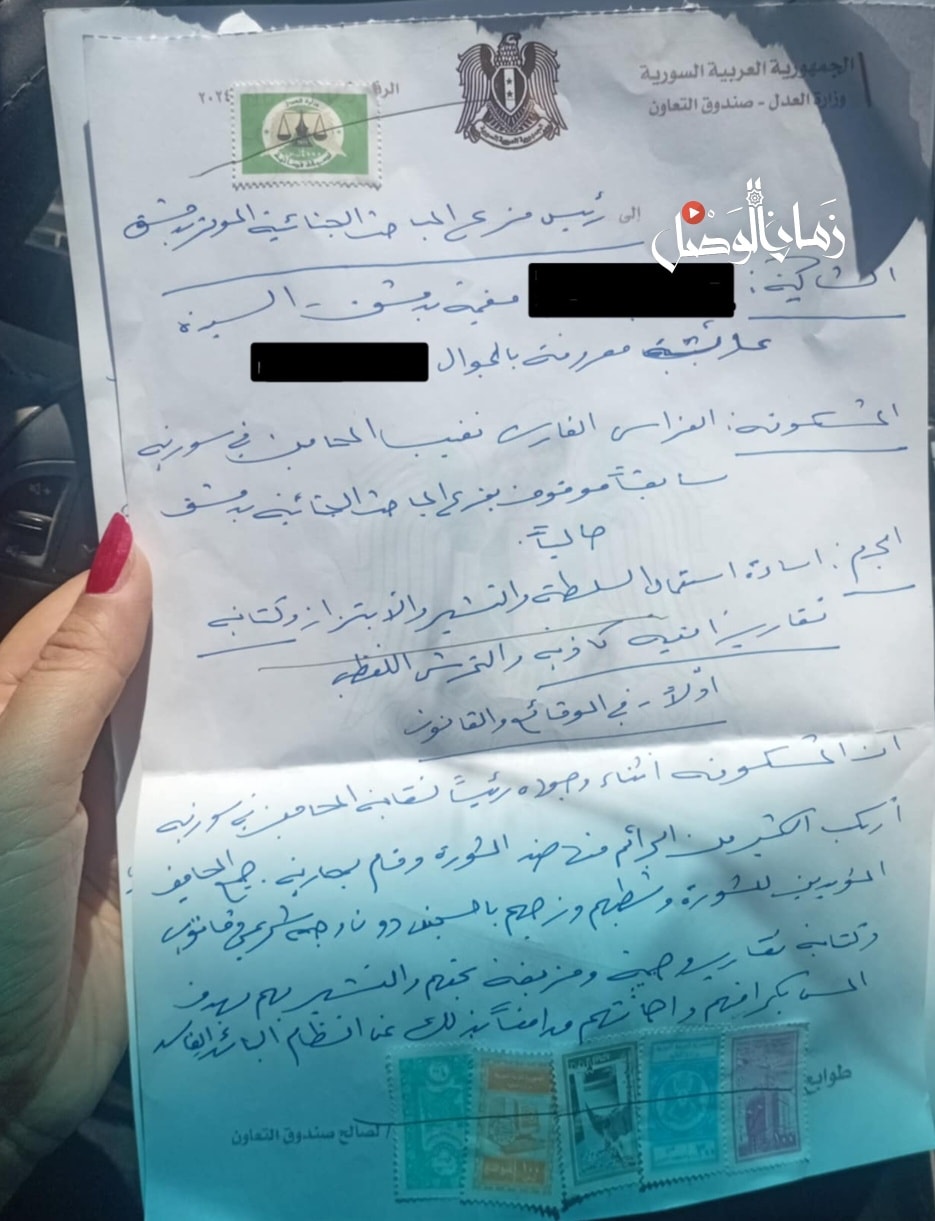 الجمهورية العربية السورية
وزارة العدل - صندوق التعاون
الرق
٢٠٢٤
زمان الوصل
إلى رئيس فرع المباحث الجنائية الموقر بدمشق
الشاكية: مقيمة بدمشق - السيدة
عائشة معروفة بالجوال
المشكو منه: الفراس الفارس نقيب المحامين في سورية
سابقاً موقوف بفرع المباحث الجنائية بدمشق
حالياً.
الجرم: اساءة استعمال السلطة والتشهير والابتزاز وكتابة
تقارير امنية كاذبة والتحرش اللفظي
أولاً - في الوقائع والقانون
ان المشكو منه أثناء وجوده رئيساً لنقابة المحامين في سورية
أرتكب الكثير من الجرائم منها ضد الثورة وقام بمحاربة جميع المحامين
المؤيدين للثورة وشطبهم وزجهم بالسجن دون وجه شرعي وقانوني
وكتابة تقارير وهمية ومزيفة بحقهم والتشهير بهم بهدف
المس بكرامتهم واهانتهم مدافعاً بذلك عن النظام البائد الفاسد
طوابع
لصالح صندوق التعاون